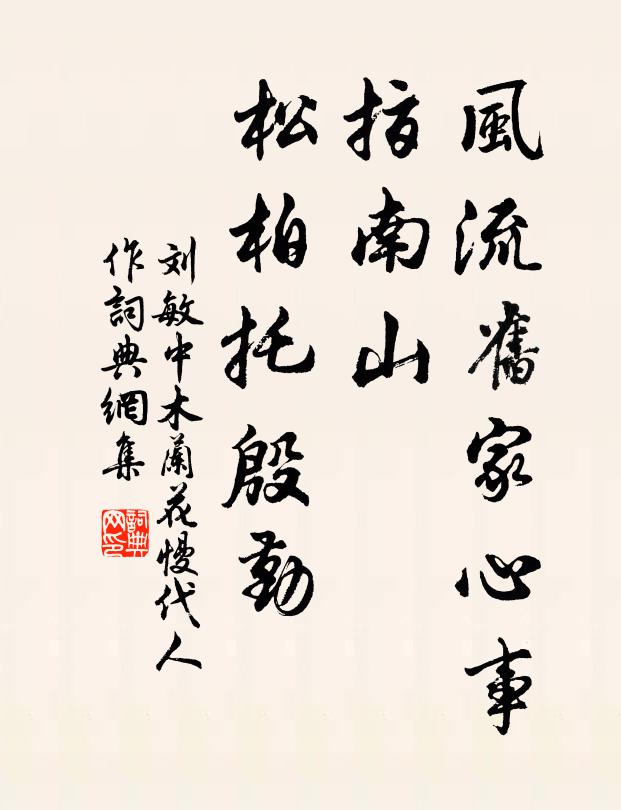 風流舊家心事
指南山
松柏托殷勤
刘敏中木蘭花慢代人
作詞典網集
詞典网印